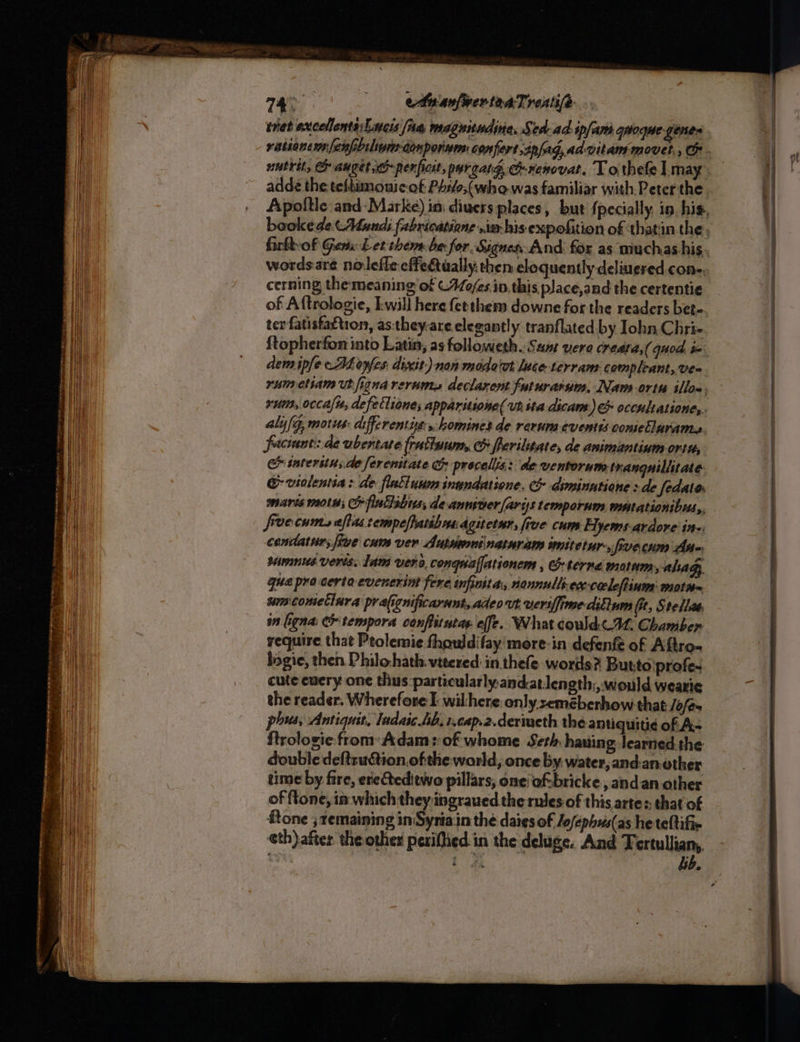 74 An answer to a Treatise
tret excellentis Lucis suæ magnitudine. Sed ad ipsam quoque gene-
rationem sensibilium corporum confert, ipsaq, ad vitam movet, &
nutrit, & auget, & perficit, purgatq, & renovat. To these I may
adde the testimonie of Philo, (who was familiar with Peter the
Apostle and Marke) in divers places, but specially in his
booke de Mundi fabricatione, in his exposition of that in the
first of Gen: Let them be for Signes. And for as much as his
words are no lesse effectually then eloquently delivered con-
cerning the meaning of Moses in this place, and the certentie
of Astrologie, I will here set them downe for the readers bet-
ter satisfaction, as they are elegantly translated by Iohn Chri-
stopherson into Latin, as followeth. Sunt vero creata, (quod i-
dem ipse Moyses dixit) non modo ut luce terram compleant, ve-
rum etiam ut signa rerum declarent futurarum. Nam ortu illo-
rum, occasu, defectione, apparitione (ut ita dicam) & occultatione,
alijsq, motus differentijs, homines de rerum eventis coniecturam
faciunt: de ubertate fructuum, & sterilitate, de animantium ortu,
& interitu, de serenitate & procellis: de ventorum tranquillitate
& violentia: de fluctuum inundatione, & diminutione: de sedato
maris motu, & fluctibus, de anniversarijs temporum mutationibus,
sive cum æstas tempestatibus agitetur, sive cum Hyems ardore in-
cendatur, sive cum ver Autumni naturam imitetur, sive cum Au-
tumnus veris. Iam vero, conquassationem, & terræ motum, aliaq
quæ pro certo evenerint fere infinita, nonnulli ex cœlestium motu-
um coniectura præsignificarunt, adeo ut verissime dictum sit, Stellas
in signa & tempora constitutas esse. What could M. Chamber
require that Ptolemie should say more in defense of Astro-
logie, then Philo hath uttered in these words? But to prose-
cute every one thus particularly and at length, would wearie
the reader. Wherefore I wil here only remēberhow that Iose-
phus, Antiquit. Iudaic. lib. 1. cap. 2. deriueth the antiquitie of A-
strologie from Adam: of whome Seth hauing learned the
double destruction of the world, once by water, and another
time by fire, erected two pillars, one of bricke, and an other
of stone, in which they ingraued the rules of this arte: that of
stone, remaining in Syria in the daies of Iosephus (as he testifi-
eth) after the other perished in the deluge. And Tertullian,
lib.